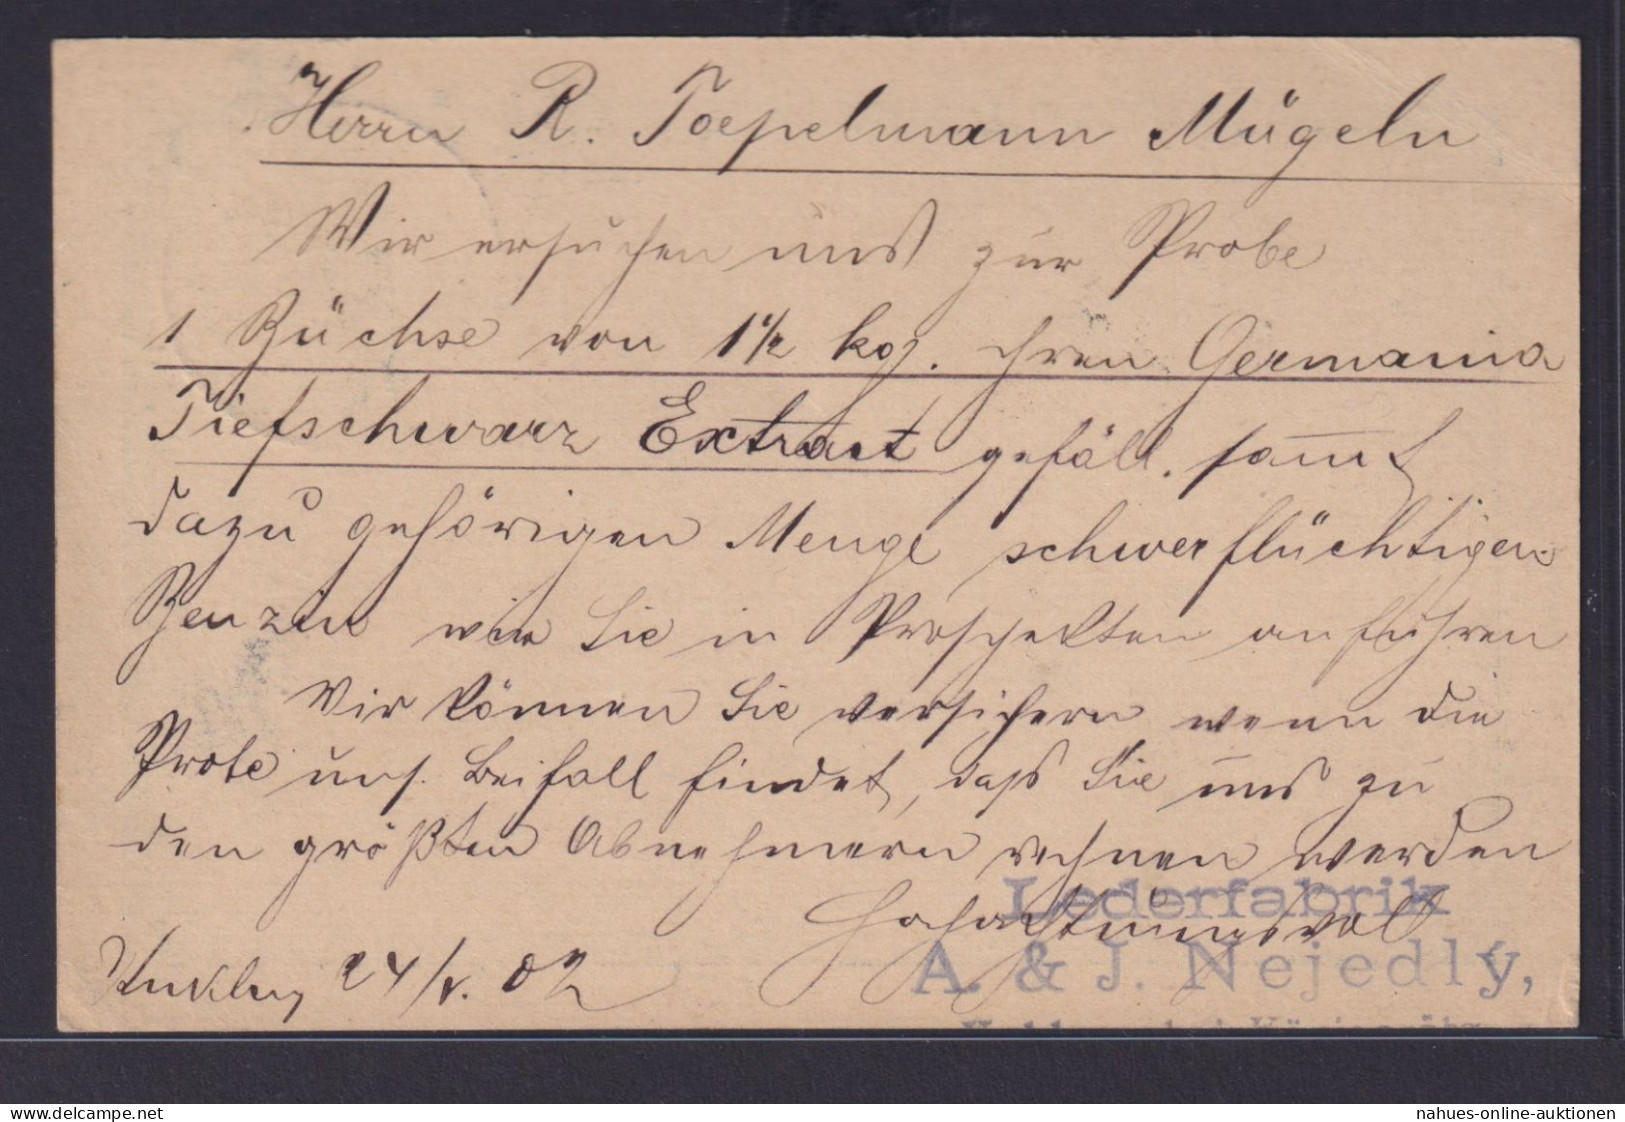 Herrn R. Toepelmann Mügeln
Wir ersuchen uns zur Probe
1 Büchse von 1½ kg. ihren Germania
Tiefschwarz Extract gefäll. samt
dazu gehörigen Menge schwerflüchtigen
Benzin wie Sie in Prospekten anführen
Wir können Sie versichern wenn die
Probe uns. Beifall findet, daß Sie uns zu
den größten Abnehmern rechnen werden
Hochachtungsvoll
Lederfabrik
A. & J. Nejedlý,
24/V. 02
delcampe.net
nahues-online-auktionen